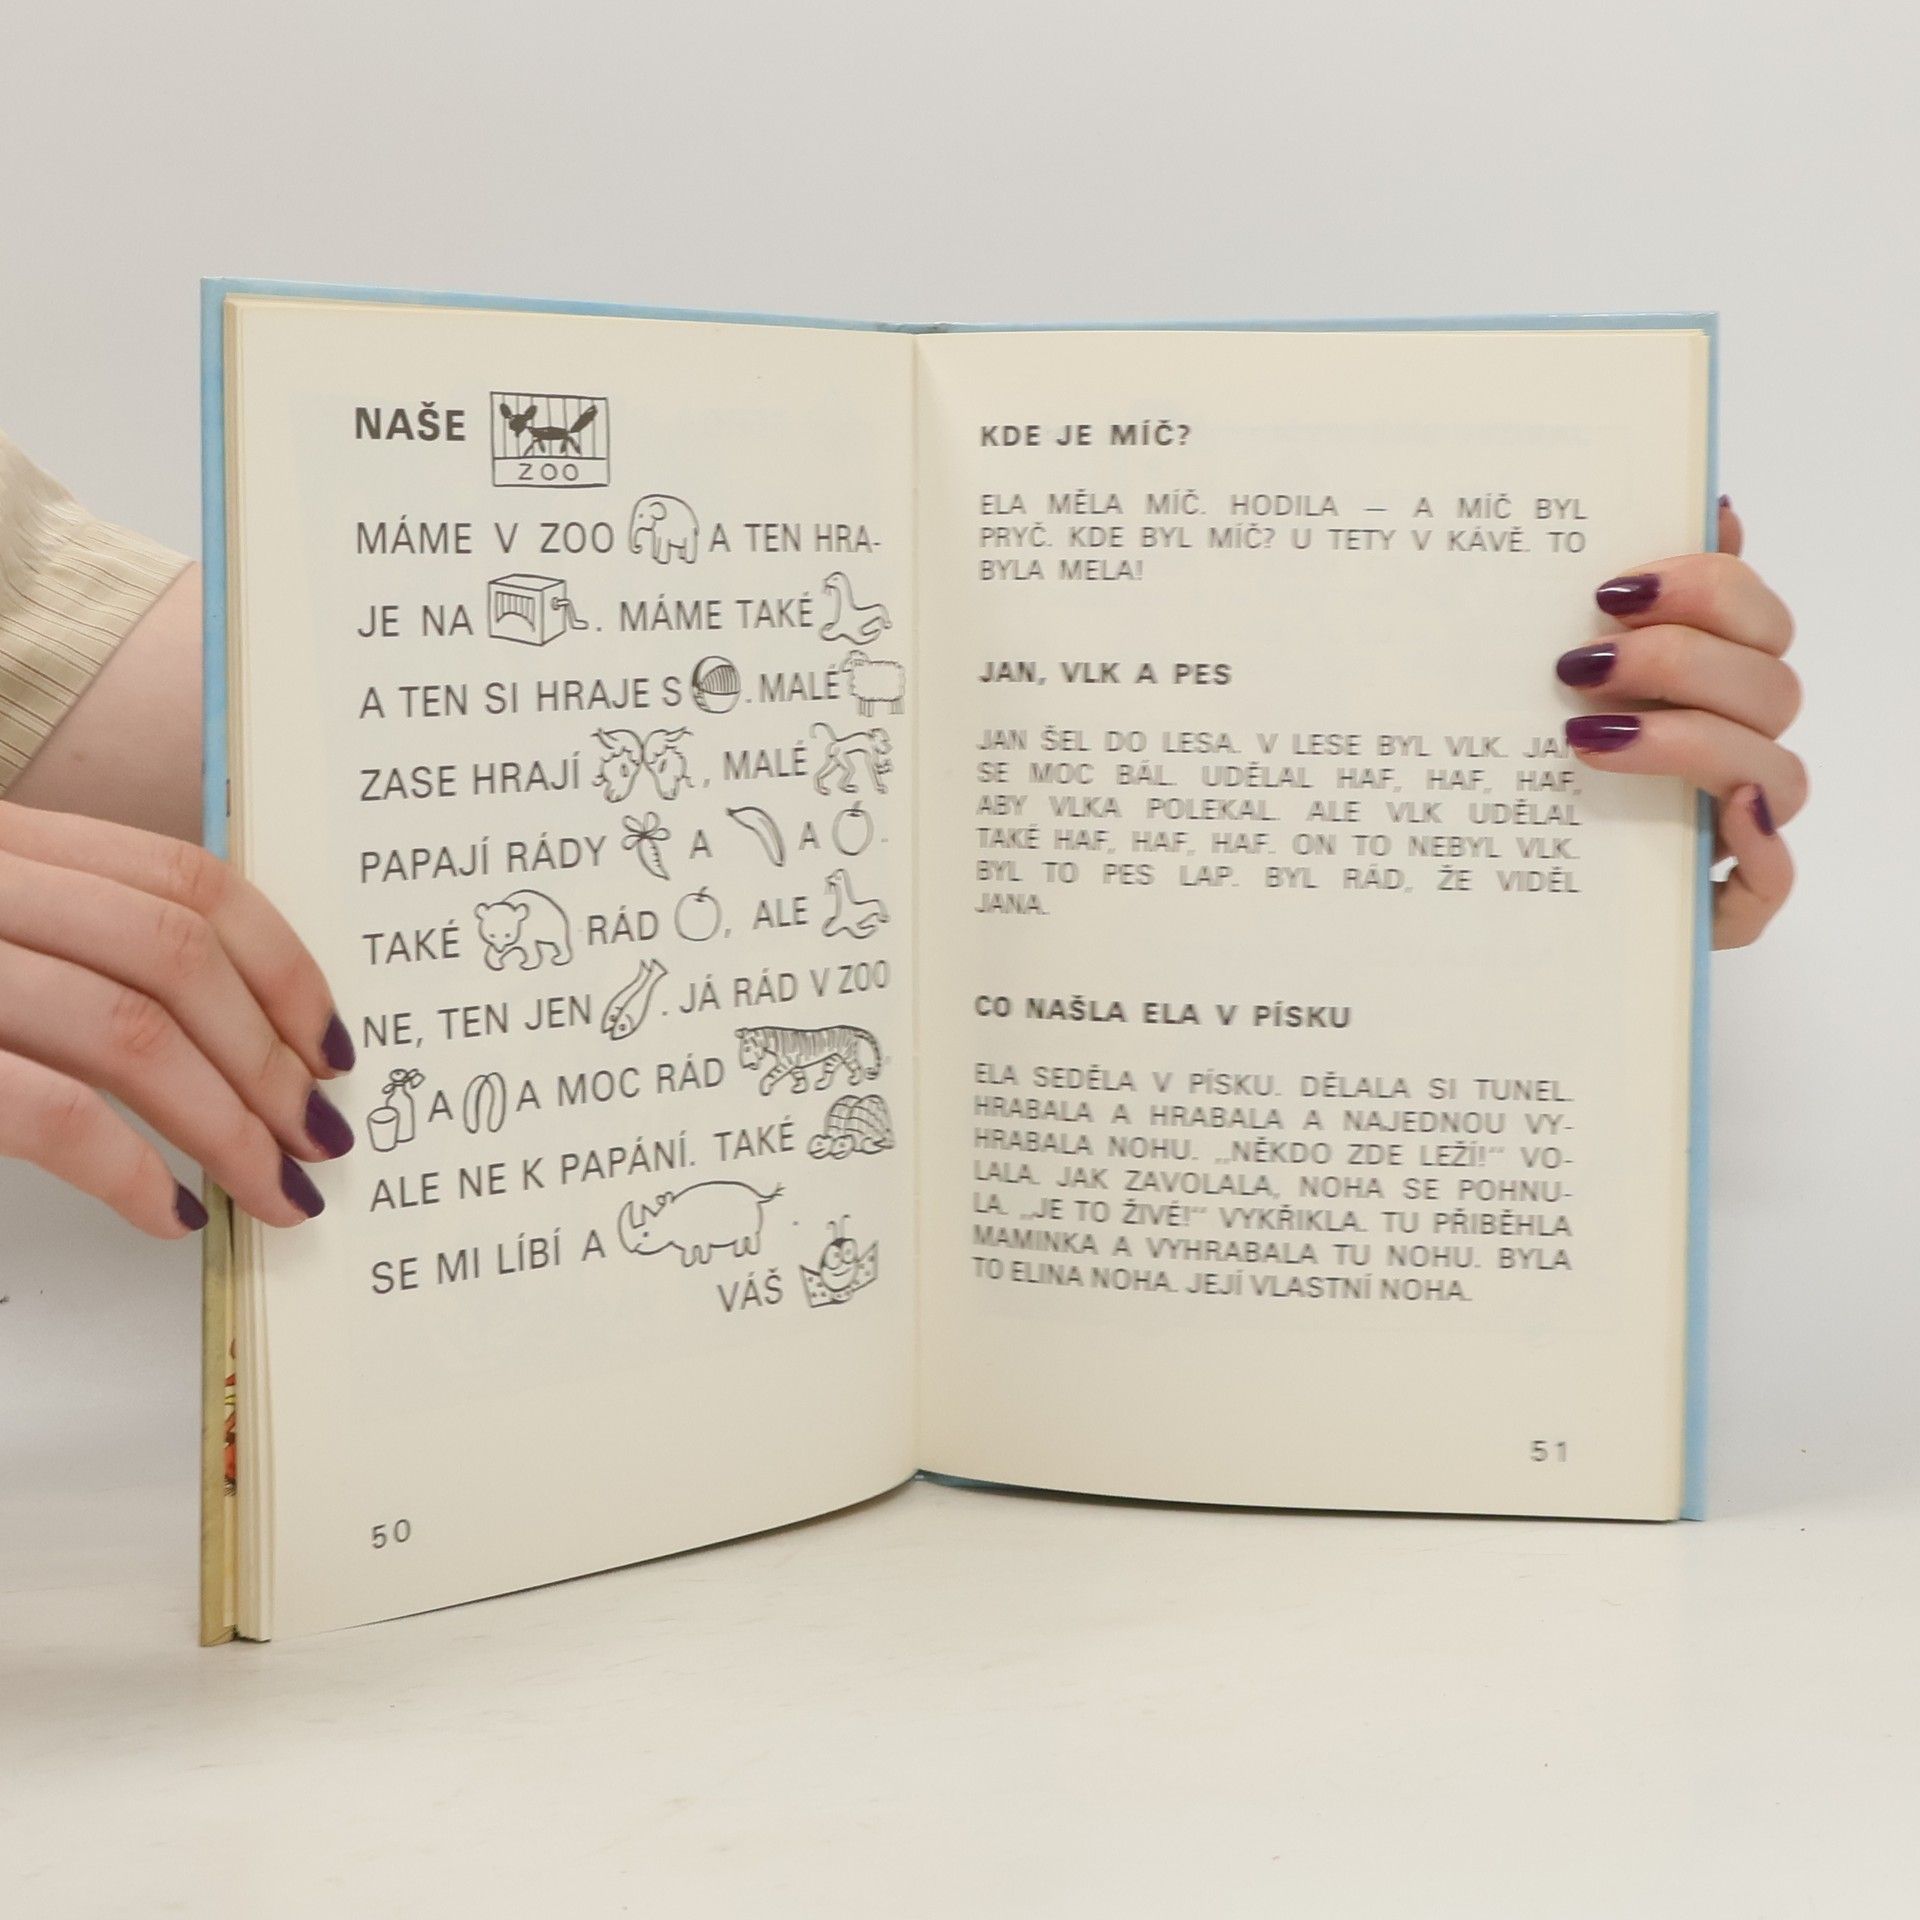 NAŠE
ZOO
MÁME V ZOO A TEN HRA-
JE NA . MÁME TAKÉ
A TEN SI HRAJE S . MALÉ
ZASE HRAJÍ , MALÉ
PAPAJÍ RÁDY A A .
TAKÉ RÁD , ALE
NE, TEN JEN . JÁ RÁD V ZOO
A A MOC RÁD
ALE NE K PAPÁNÍ. TAKÉ
SE MI LÍBÍ A .
VÁŠ
50
KDE JE MÍČ?
ELA MĚLA MÍČ. HODILA — A MÍČ BYL
PRYČ. KDE BYL MÍČ? U TETY V KÁVĚ. TO
BYLA MELA!
JAN, VLK A PES
JAN ŠEL DO LESA. V LESE BYL VLK. JAN
SE MOC BÁL. UDĚLAL HAF, HAF, HAF,
ABY VLKA POLEKAL. ALE VLK UDĚLAL
TAKÉ HAF, HAF, HAF. ON TO NEBYL VLK.
BYL TO PES LAP. BYL RÁD, ŽE VIDĚL
JANA.
CO NAŠLA ELA V PÍSKU
ELA SEDĚLA V PÍSKU. DĚLALA SI TUNEL.
HRABALA A HRABALA A NAJEDNOU VY-
HRABALA NOHU. „NĚKDO ZDE LEŽÍ!“ VO-
LALA. JAK ZAVOLALA, NOHA SE POHNU-
LA. „JE TO ŽIVÉ!“ VYKŘIKLA. TU PŘIBĚHLA
MAMINKA A VYHRABALA TU NOHU. BYLA
TO ELINA NOHA. JEJÍ VLASTNÍ NOHA.
51